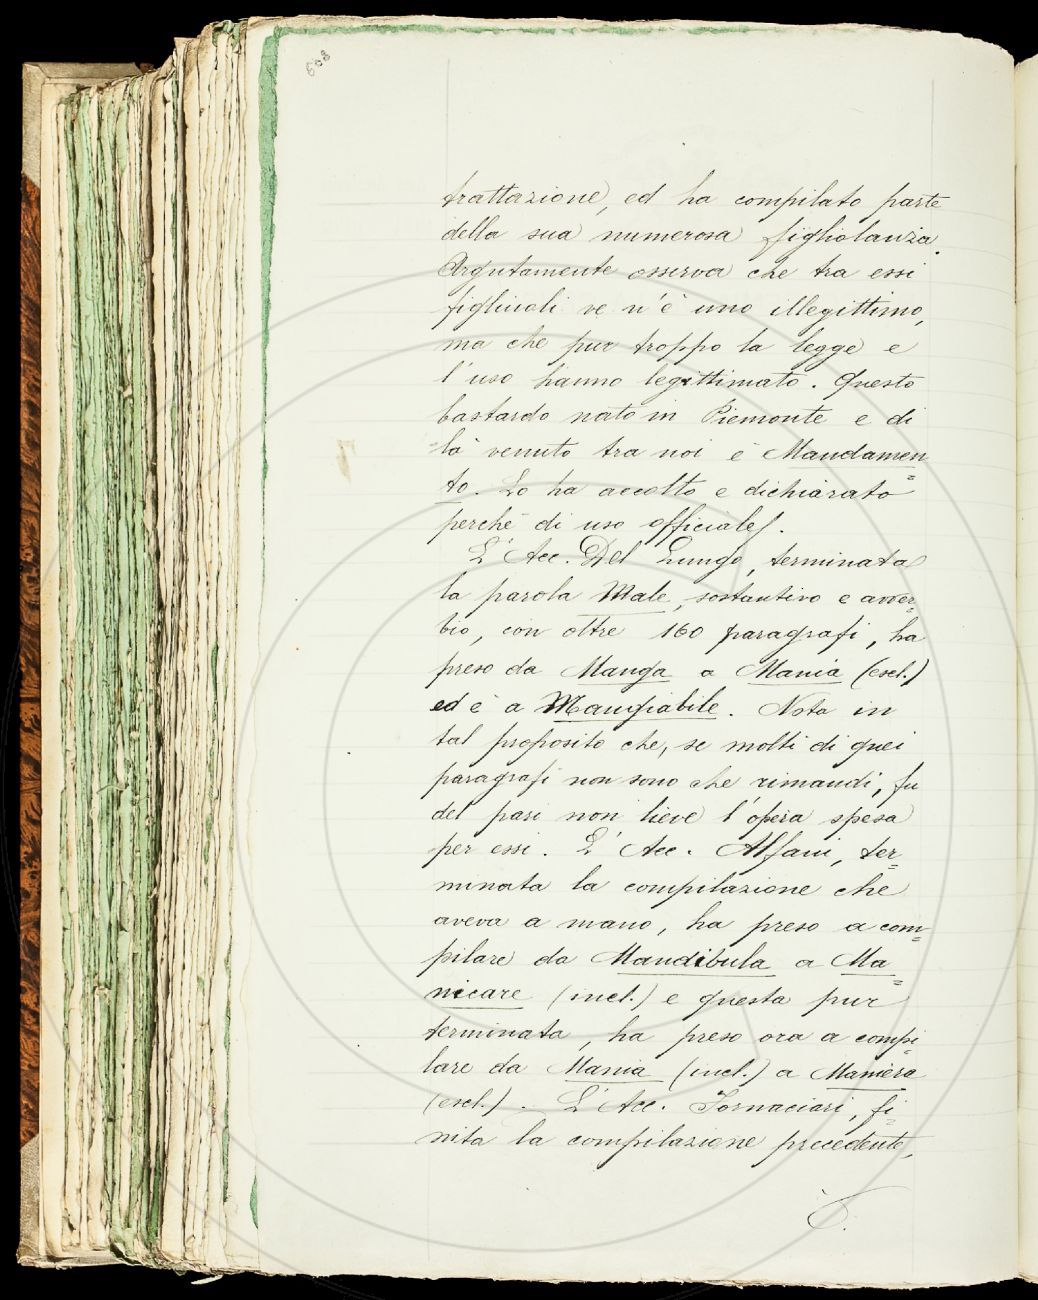 608
trattazione, ed ha compilato parte
della sua numerosa figliolanza.
Argutamente osserva che tra essi
figliuoli ve n'è uno illegittimo,
ma che pur troppo la legge e
l'uso hanno legittimato. Questo
bastardo nato in Piemonte e di
là venuto tra noi è Mandamen=
to. Lo ha accolto e dichiarato
perchè di uso officiale.
L'Acc. Del Lungo, terminata
la parola Male, sostantivo e avver=
bio, con oltre 160 paragrafi, ha
preso da Manga a Mania (escl.)
ed è a Mangiabile. Nota in
tal proposito che, se molti di quei
paragrafi non sono che rimandi, fu
del pari non lieve l'opera spesa
per essi. L'Acc. Alfani, ter=
minata la compilazione che
aveva a mano, ha preso a com=
pilare da Mandibula a Ma=
nicare (incl.) e questa pur
terminata, ha preso ora a compi=
lare da Mania (incl.) a Maniera
(escl.). L'Acc. Fornaciari, fi=
nita la compilazione precedente,